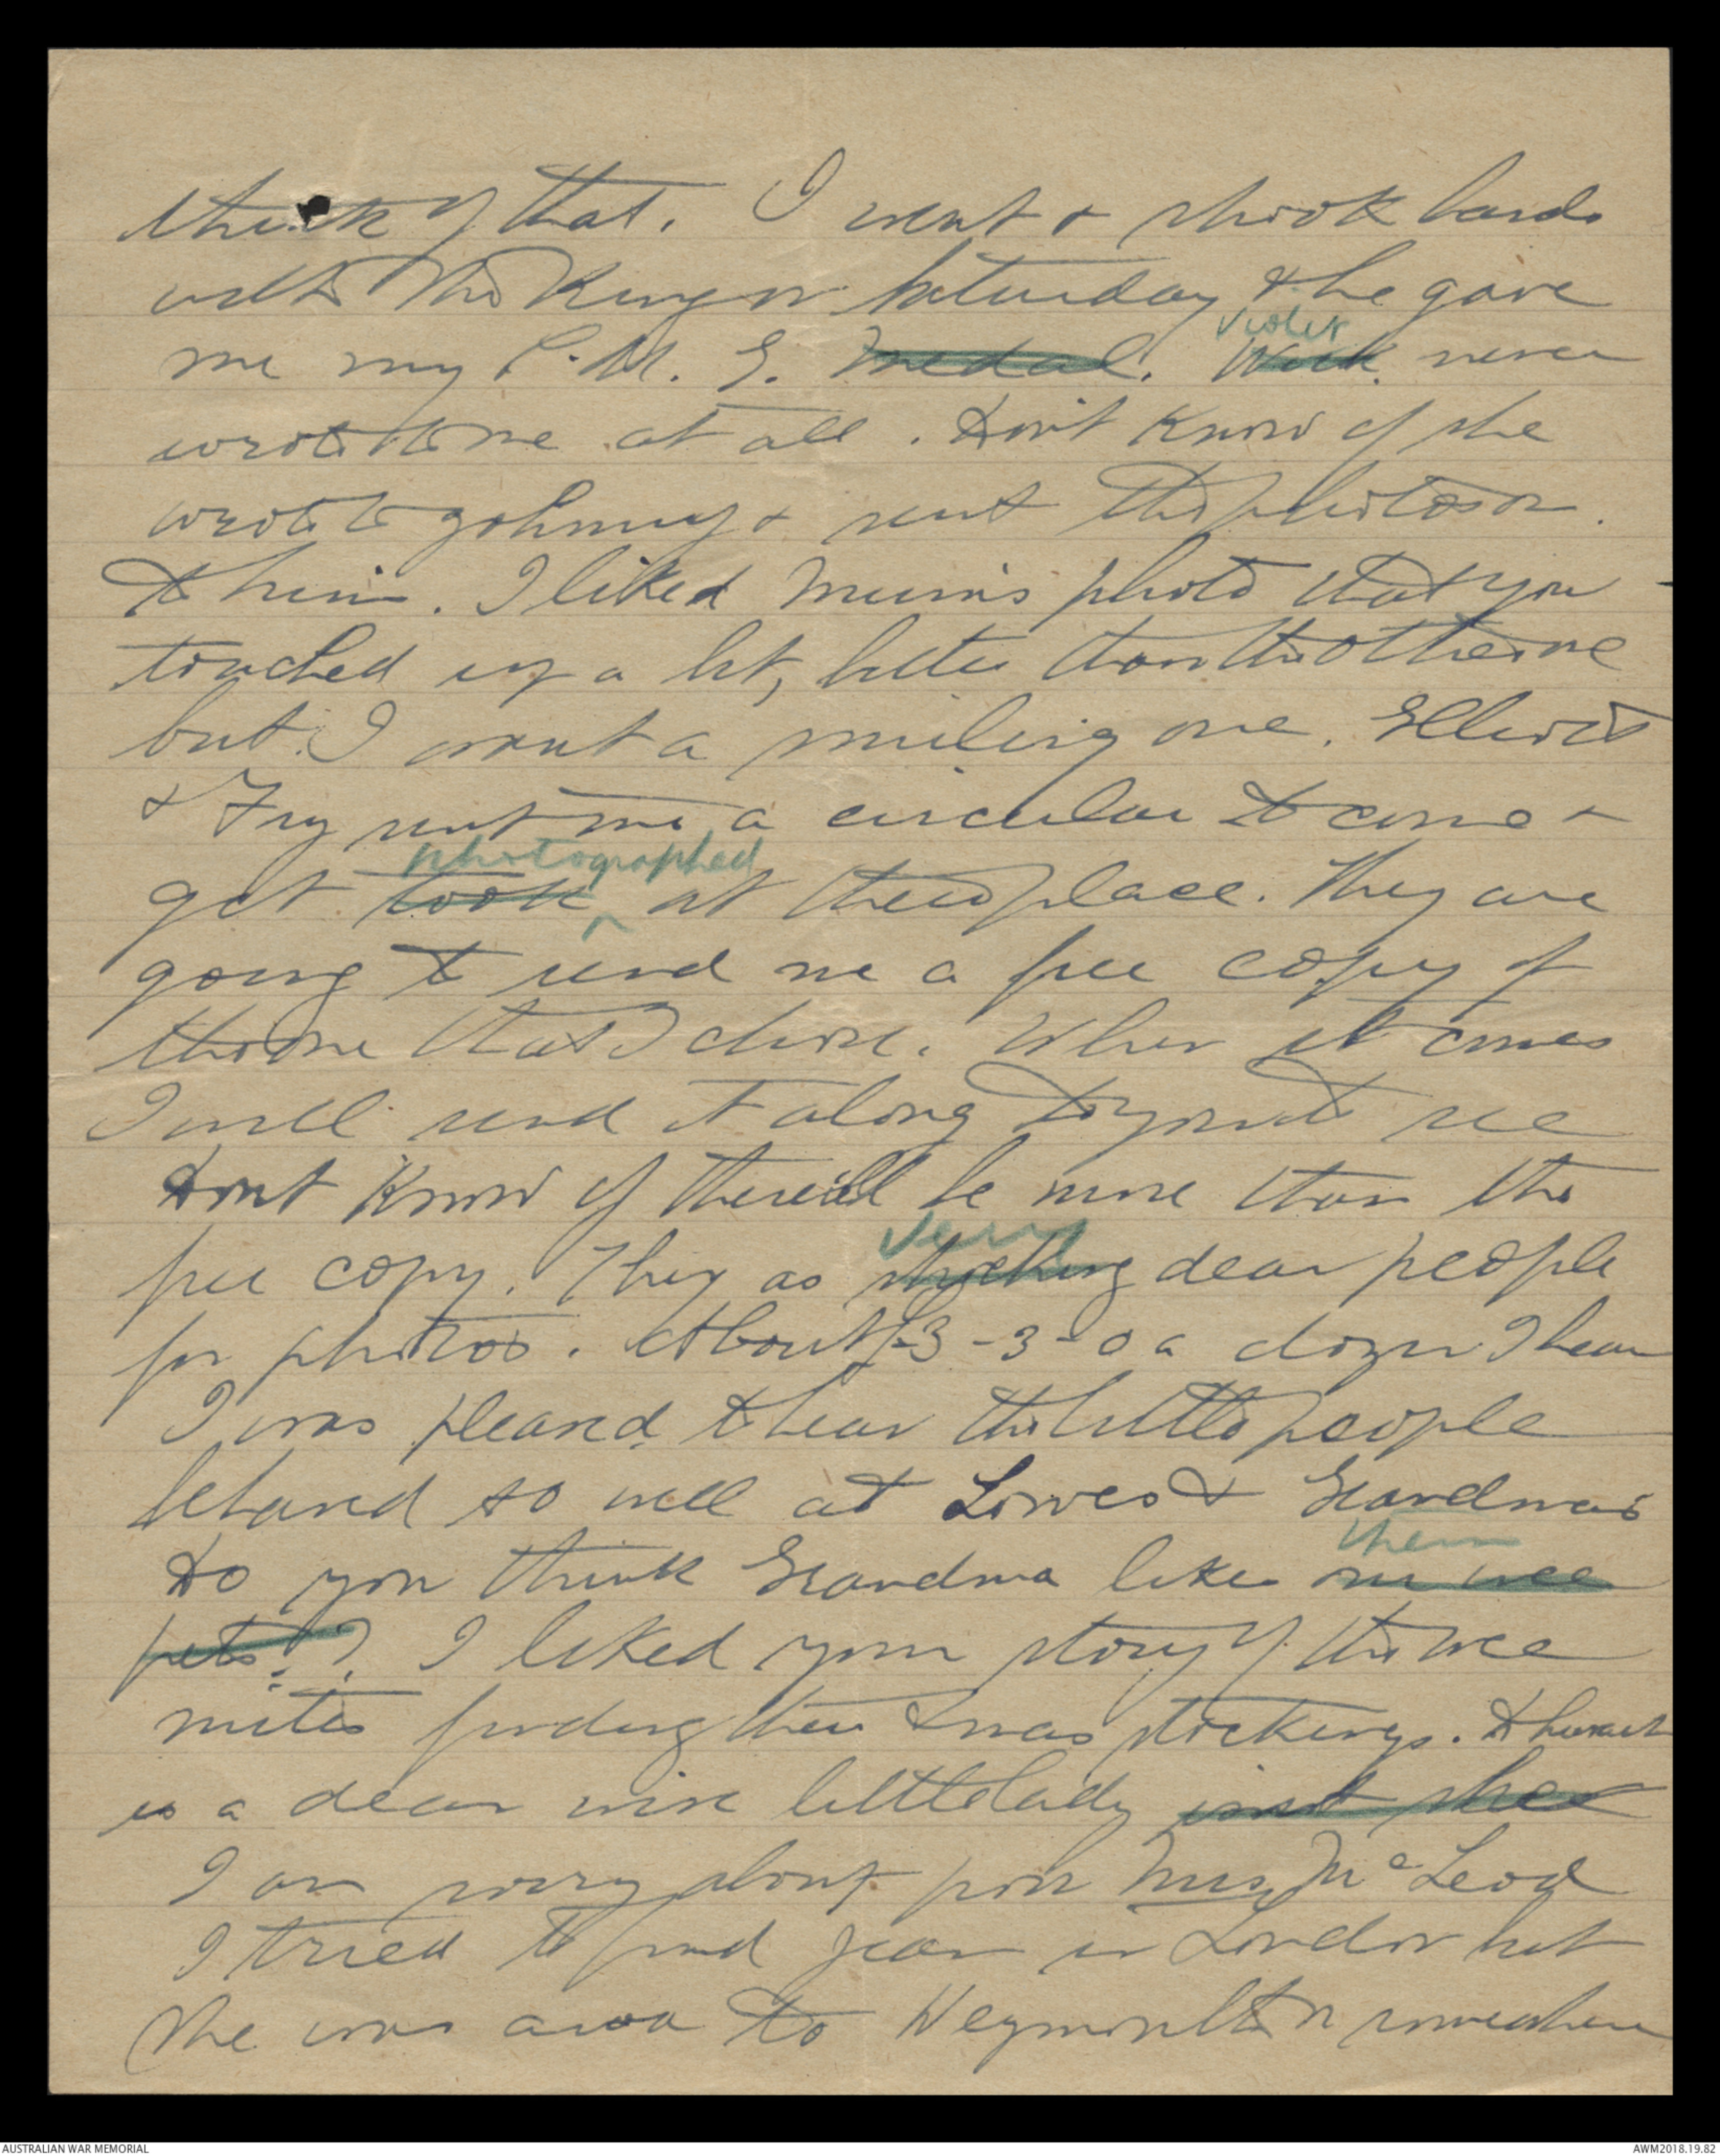 think of that. I went & shook hands
with the King on Saturday & he gave
Violet
me my C.M.G. medal. Week never
wrote to me at all. Don't know if she
wrote to Johnny & sent the photos on
to him. I liked Mum's photo that you
touched up a bit, better than the other one
but I want a smiling one. Elliott
& Fry sent me a circular to come &
photographed
get took ^ at their place. They are
going to send me a free copy of
the one that I chose. When it comes
I will send it along to you to see
Dont know if there'll be more than the
very
free copy. They as shocking dear people
for photos. About £3-3-0 a dozen I hear
I was pleased to hear the little people
behaved so well at Lowes & Grandmas
them
Do you think Grandma likes our wee
pets? I liked your story of the wee
mites finding their Xmas stockings.
is a dear wise little lady isn't she
I am sorry about poor Mrs McLeod
I tried to find Jean in London but
she was awa to Weymouth or somewhere
AUSTRALIAN WAR MEMORIAL
AWM2018.19.82